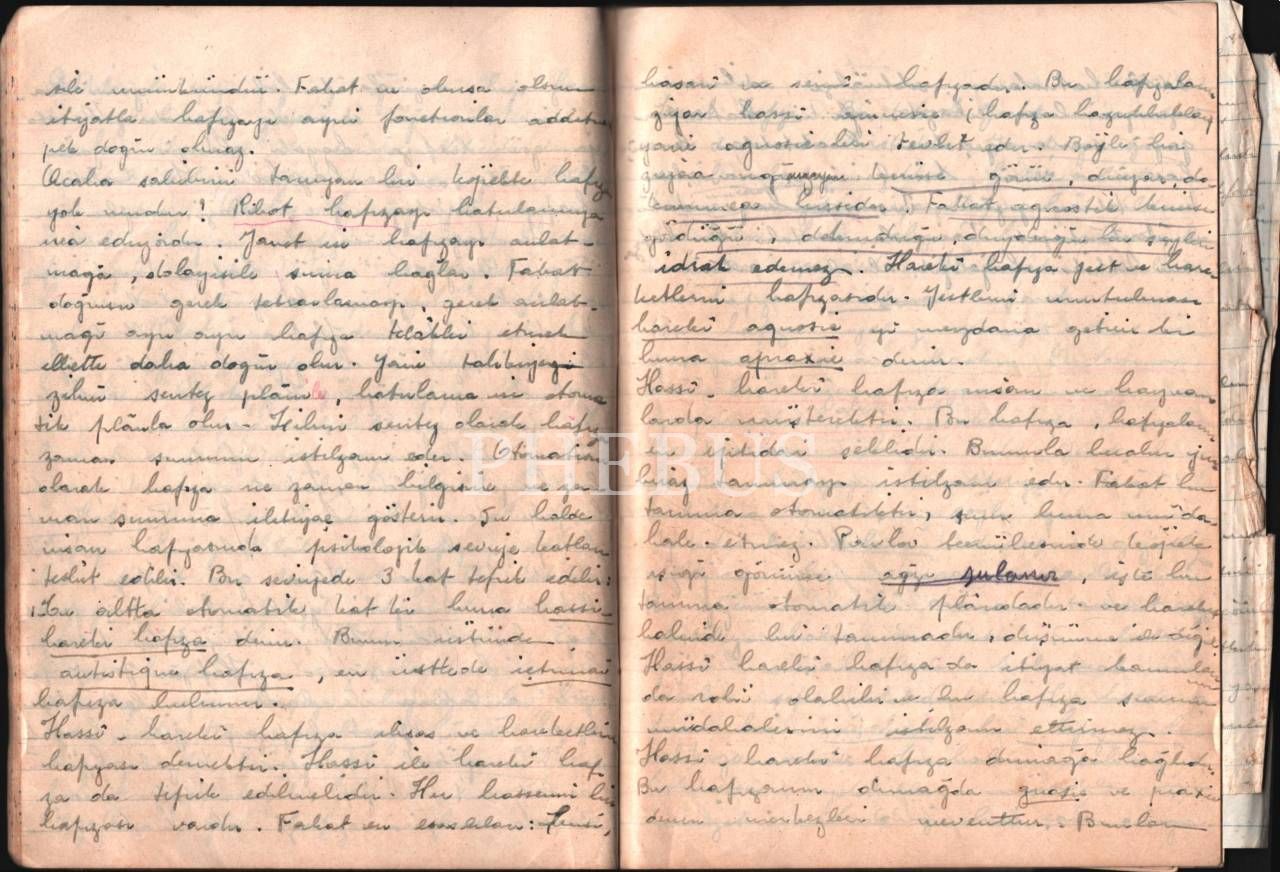 mümkündür. Fakat ne olursa olsun
itiyatla hafızayı ayni fonctionlar addetmek
pek doğru olmaz.
Acaba sahibini tanıyan bir köpekte hafıza
yok mudur! Ribot hafızayı hatırlamaya
irca ediyordu. Janet ise hafızayı anlat-
mağa, dolayısile şuura bağlar. Fakat
doğrusu gerek tekrarlamayı, gerek anlat-
mağı ayrı ayrı hafıza telâkki etmek
elbette daha doğru olur. Yani
zihni sentez plânile, hatırlama ise otoma
tik plânla olur. Zihni sentez olarak hafıza
zaman şuurunu istilzam eder. Otomatism
olarak hafıza ne zaman bilgisine ne za
man şuuruna ihtiyaç gösterir. Şu halde
insan hafızasında psikolojik seviye katları
tesbit edilir. Bu seviyede 3 kat tefrik edilir:
En altta otomatik kat ki buna hassi-
hareki hafıza denir. Bunun üstünde
autistique hafıza, en üstte de içtimai
hafıza bulunur.
Hassî - harekî hafıza ihsas ve hareketlerin
hafızası demektir. Hassî ile harekî hafı
za da tefrik edilmelidir. Her hassenin bir
hafızası vardır. Fakat en esasları: Lemsî,
basarî ve sem'î hafızadır. Bu hafızaların
ziyaı hassî amnesie (hafıza bozuklukları
yani agnosieleri tevlit eder. Böyle bir
kimse görür, duyar, do
kunmayı hisseder. Fakat agnostik kimse
gördüğü, dokunduğu, duyduğu bu şeyleri
idrak edemez. Harekî hafıza jest ve hare
ketlerin hafızasıdır. Jestlerin unutulması
harekî agnosie yi meydana getirir ki
buna apraxie denir.
Hassî - harekî hafıza insan ve hayvan
larda müşterektir. Bu hafıza, hafızaların
en iptidai şeklidir. Bununla beraber
biraz tanımayı istilzam eder. Fakat bu
tanıma otomatiktir, şuur buna müda
hale etmez. Pavlov tecrübesinde köpek
ışığı görünce ağzı sulanır, işte bu
tanıma otomatik plândadır ve hareket
halinde bir tanımadır, düşünme ile değil.
Hassî harekî hafıza da itiyat kanunların
da rolü olabilir ve bu hafıza şuurun
müdahalesini istilzam ettirmez.
Hassî - harekî hafıza dimağa bağlıdır.
Bu hafızanın dimağda gnosie ve praxie
denen merkezleri mevcuttur. Bunların
PHEBUS